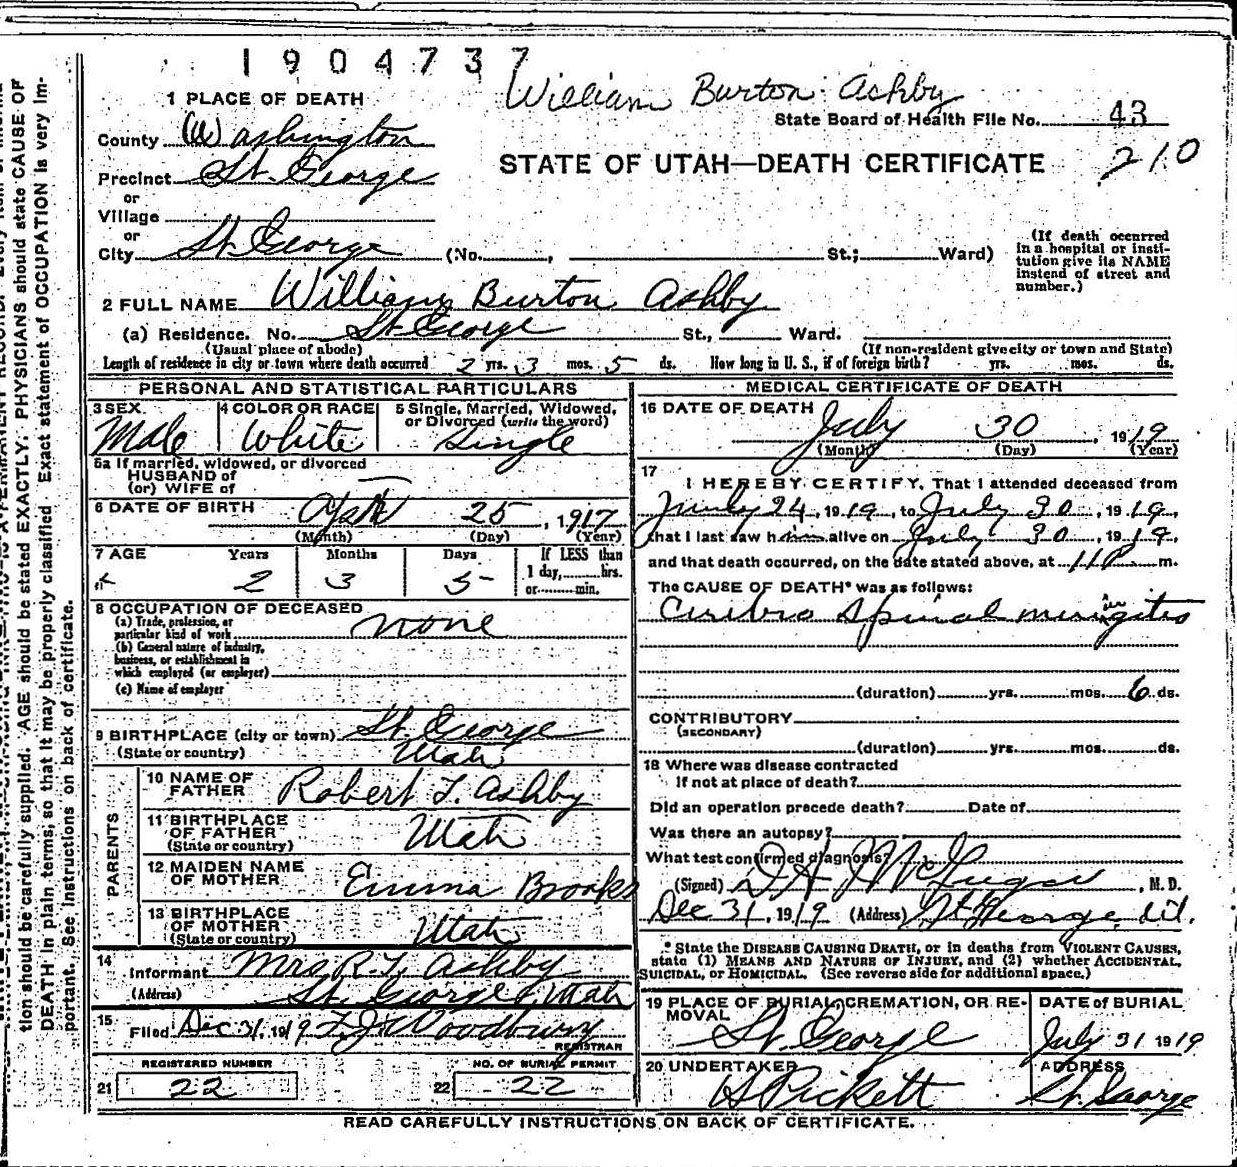 1904737
William Burton Ashby
1 PLACE OF DEATH
State Board of Health File No. 43
County Washington
STATE OF UTAH—DEATH CERTIFICATE 210
Precinct St. George
or
Village
or
City St. George (No. , St.; Ward)
(If death occurred
in a hospital or insti-
tution give its NAME
instead of street and
number.)
2 FULL NAME William Burton Ashby
(a) Residence. No. St George St., Ward.
(Usual place of abode) (If non-resident give city or town and State)
Length of residence in city or town where death occurred 2 yrs. 3 mos. 5 ds. How long in U. S., if of foreign birth? yrs. mos. ds.
PERSONAL AND STATISTICAL PARTICULARS
3 SEX 4 COLOR OR RACE 5 Single, Married, Widowed,
or Divorced (write the word)
Male White Single
5a If married, widowed, or divorced
HUSBAND of
(or) WIFE of
6 DATE OF BIRTH Apr 25, 1917
(Month) (Day) (Year)
7 AGE Years Months Days If LESS than
1 day, hrs.
or min.
2 3 5
8 OCCUPATION OF DECEASED
(a) Trade, profession, or
particular kind of work none
(b) General nature of industry,
business, or establishment in
which employed (or employer)
(c) Name of employer
9 BIRTHPLACE (city or town) St. George
(State or country) Utah
PARENTS
10 NAME OF
FATHER Robert T. Ashby
11 BIRTHPLACE
OF FATHER Utah
(State or country)
12 MAIDEN NAME
OF MOTHER Emma Brooks
13 BIRTHPLACE
OF MOTHER Utah
(State or country)
14
Informant Mrs R. T. Ashby
(Address) St. George, Utah
15
Filed Dec 31, 1919 Woodbury
REGISTRAR
REGISTERED NUMBER NO. OF BURIAL PERMIT
21 22 22 22
MEDICAL CERTIFICATE OF DEATH
16 DATE OF DEATH July 30, 1919
(Month) (Day) (Year)
17
I HEREBY CERTIFY, That I attended deceased from
July 24, 1919, to July 30, 1919,
that I last saw him alive on July 30, 1919,
and that death occurred, on the date stated above, at 11 P m.
The CAUSE OF DEATH* was as follows:
Ceribro Spinal miningitis
(duration) yrs. mos. 6 ds.
CONTRIBUTORY
(SECONDARY)
(duration) yrs. mos. ds.
18 Where was disease contracted
If not at place of death?
Did an operation precede death? Date of
Was there an autopsy?
What test confirmed diagnosis?
(Signed) McGregor, M. D.
Dec 31, 1919 (Address) St George, Ut.
* State the DISEASE CAUSING DEATH, or in deaths from VIOLENT CAUSES,
state (1) MEANS AND NATURE OF INJURY, and (2) whether ACCIDENTAL,
SUICIDAL, or HOMICIDAL. (See reverse side for additional space.)
19 PLACE OF BURIAL, CREMATION, OR RE-
MOVAL St. George
DATE of BURIAL
July 31 1919
20 UNDERTAKER
Pickett
ADDRESS
St. George
READ CAREFULLY INSTRUCTIONS ON BACK OF CERTIFICATE.
tion should be carefully supplied. AGE should be stated EXACTLY. PHYSICIANS should state CAUSE OF
DEATH in plain terms, so that it may be properly classified. Exact statement of OCCUPATION is very im-
portant. See instructions on back of certificate.